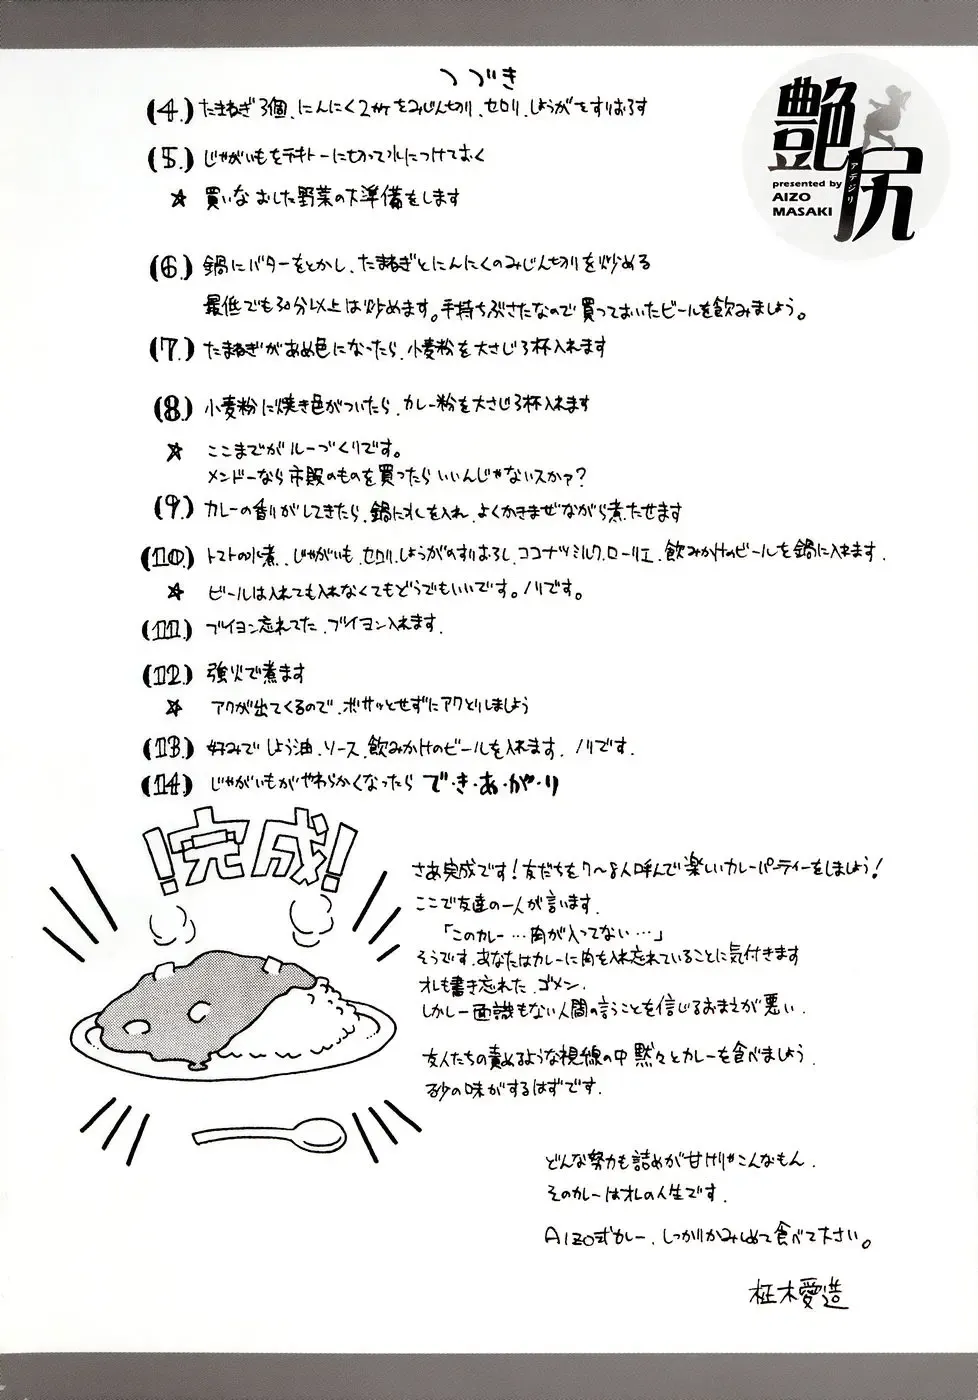 つづき
艶尻
アデジリ
presented by
AIZO
MASAKI
(4.) たまねぎ3個、にんにく2ケをみじん切り、セロリ、しょうがをすりおろす
(5.) じゃがいもをテキトーに切って水につけておく
☆ 買いなおした野菜の下準備をします
(6.) 鍋にバターをとかし、たまねぎとにんにくのみじん切りを炒める
最低でも30分以上は炒めます。手持ちぶさたなので買っておいたビールを飲みましょう。
(7.) たまねぎがあめ色になったら、小麦粉を大さじ3杯入れます
(8.) 小麦粉に焼き色がついたら、カレー粉を大さじ3杯入れます
☆ ここまでがルーづくりです。
メンドーなら市販のものを買ったらいいんじゃないスかァ?
(9.) カレーの香りがしてきたら、鍋に水を入れ、よくかきまぜながら煮たせます
(10.) トマトの水煮、じゃがいも、セロリ、しょうがのすりおろし、ココナツミルク、ローリエ、飲みかけのビールを鍋に入れます.
☆ ビールは入れても入れなくてもどうでもいいです。ノリです。
(11.) ブイヨン忘れてた、ブイヨン入れます.
(12.) 強火で煮ます
☆ アクが出てくるので、ボサッとせずにアクとりしましょう
(13.) 好みでしょう油、ソース、飲みかけのビールを入れます、ノリです.
(14.) じゃがいもがやわらかくなったら で・き・あ・が・り
!完成!
さあ完成です!友だちを7〜8人呼んで楽しいカレーパーティーをしましょう!
ここで友達の一人が言います.
「このカレー…肉が入ってない…」
そうです、あなたはカレーに肉を入れ忘れていることに気付きます
オレも書き忘れた、ゴメン.
しかし一面識もない人間の言うことを信じるおまえが悪い.
友人たちの責めるような視線の中 黙々とカレーを食べましょう.
砂の味がするはずです.
どんな努力も詰めが甘けりゃこんなもん.
そのカレーはオレの人生です.
AIZO式カレー、しっかりかみしめて食べて下さい。
柾木愛造